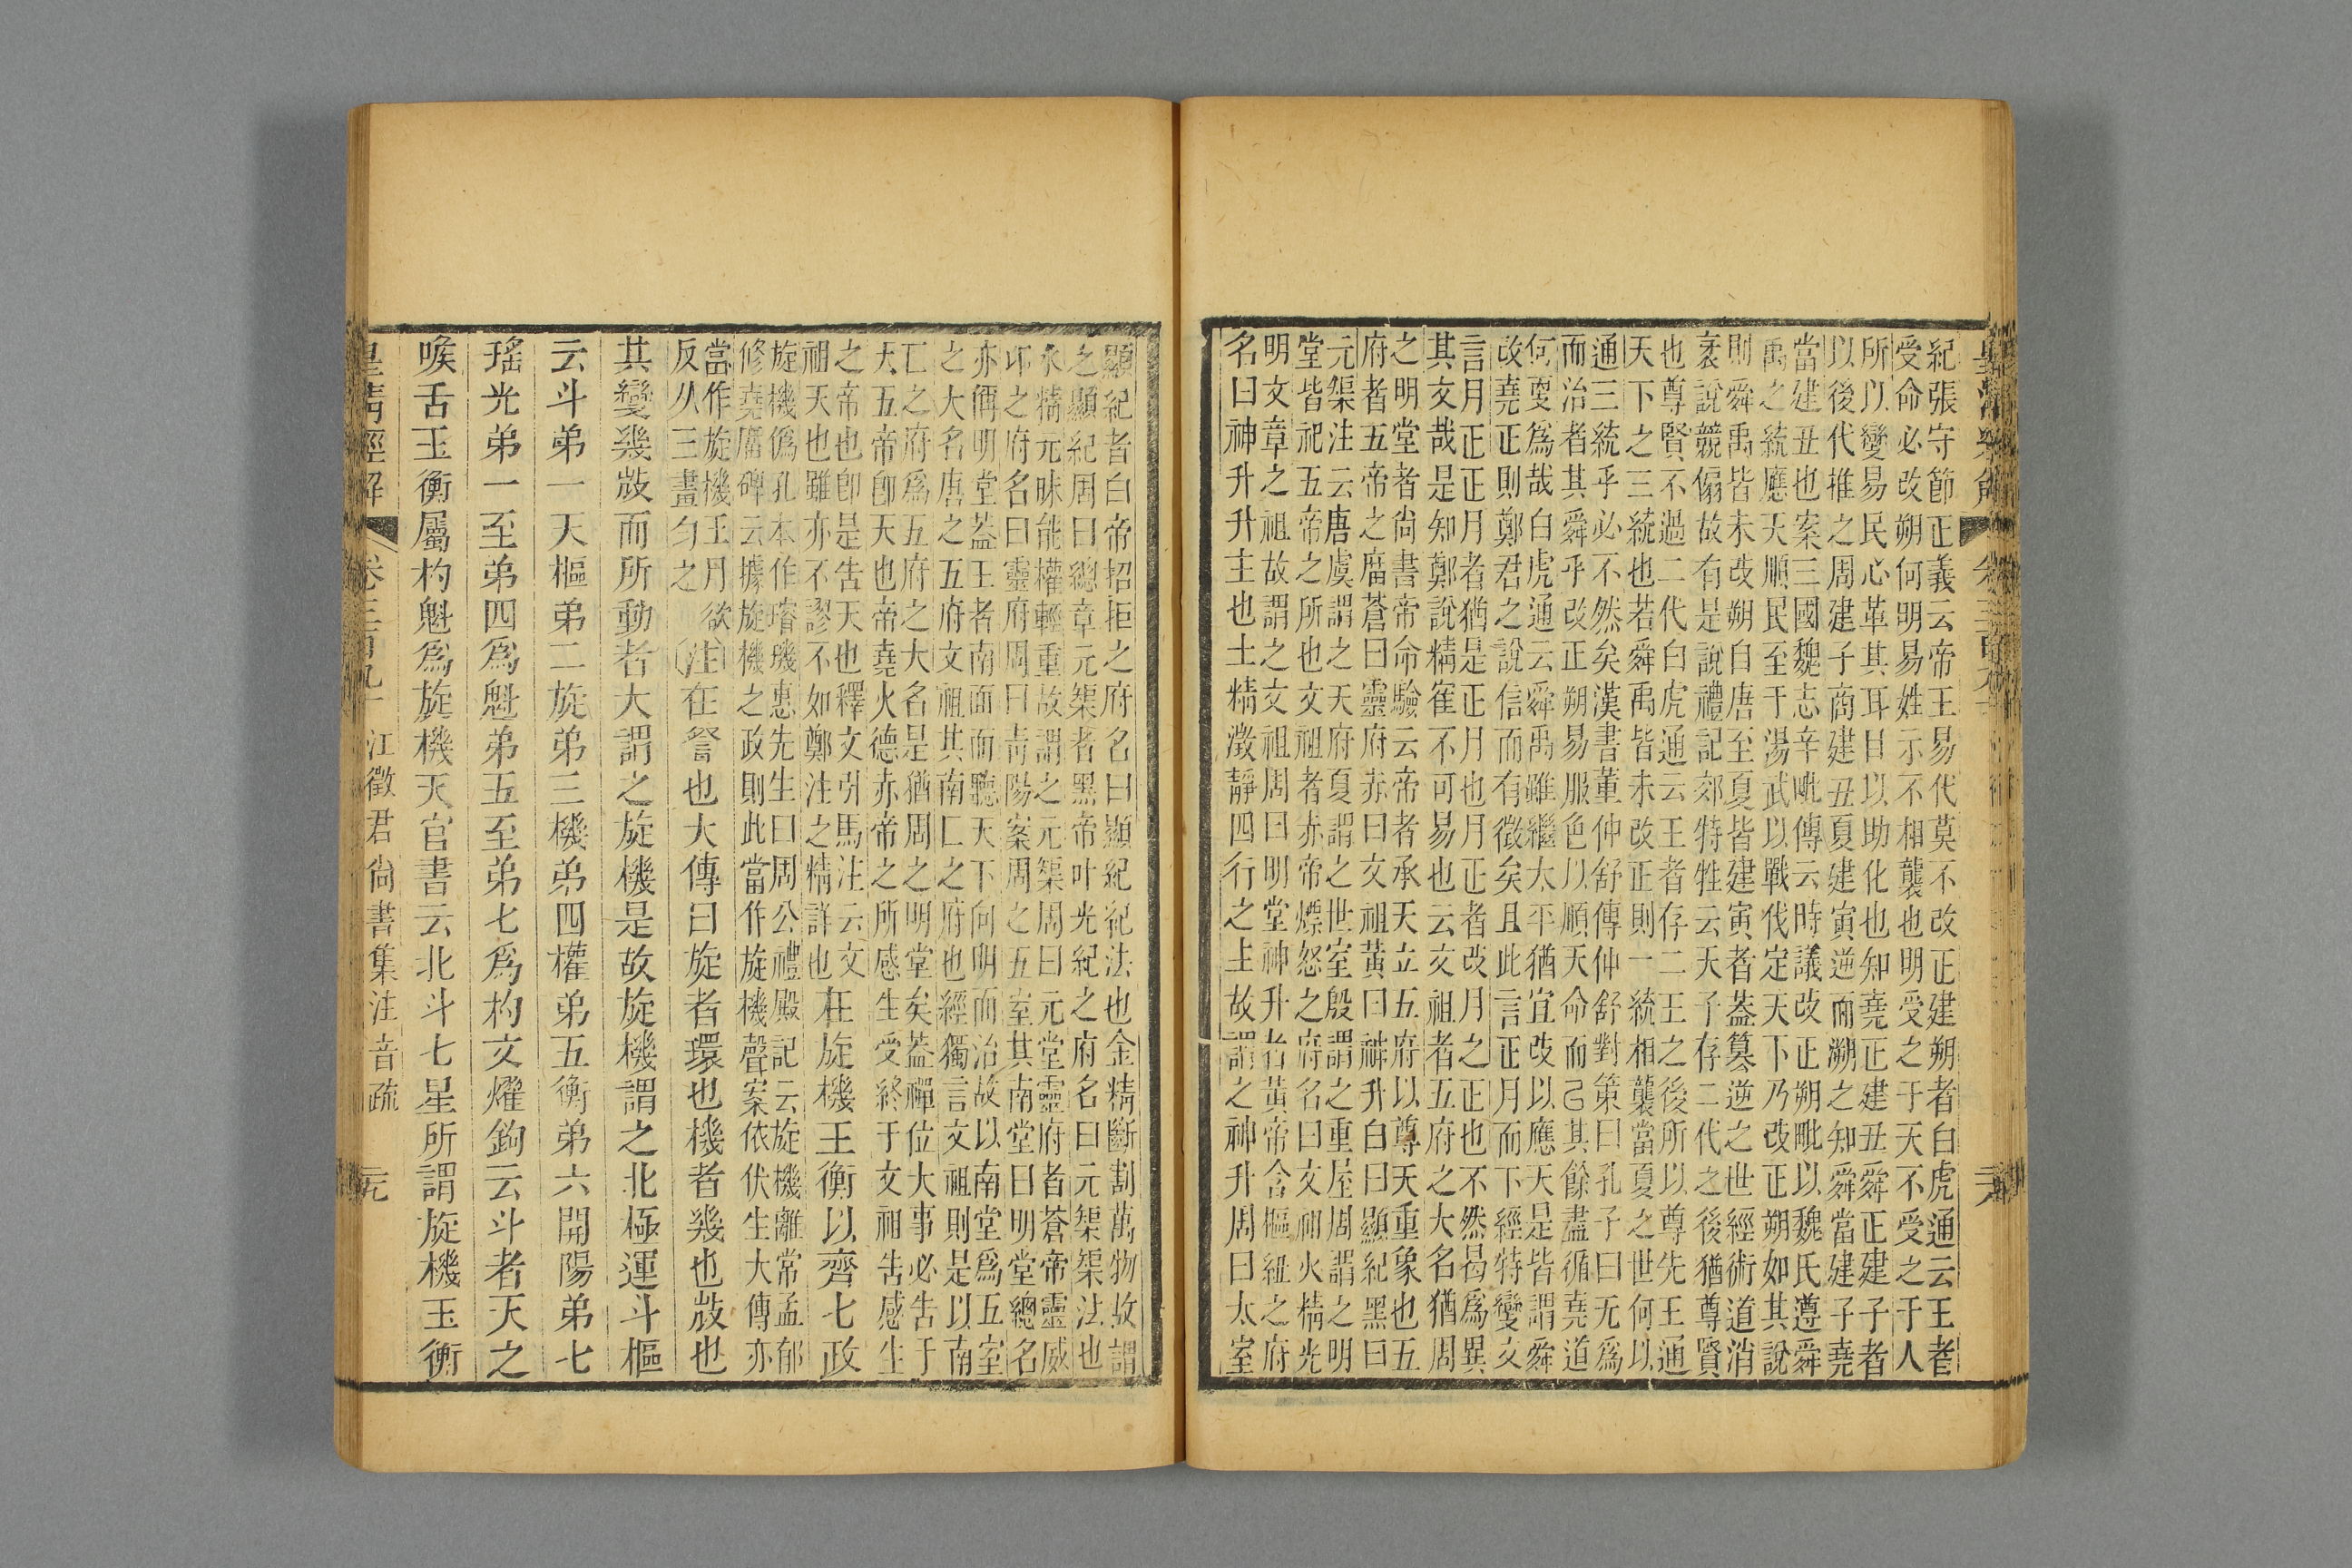 皇清經解
紀張守節正義云帝王易代莫不改正建朔者白虎通云王者
受命必改朔何明易姓示不相襲也明受之于天不受之于人
所以變易民心革其耳目以助化也知堯正建丑舜正建子者
以後代推之周建子商建丑夏建寅逆而溯之知舜當建子堯
當建丑也案三國魏志辛毗傳云時議改正朔毗以魏氏遵舜
禹之統應天順民至于湯武以戰伐定天下乃改正朔如其說
則舜禹皆未改朔自唐至夏皆建寅者蓋篡逆之世經術道消
衺說競偏故有是說禮記郊特牲云天子存二代之後猶尊賢
也尊賢不過二代白虎通云王者存二王之後所以尊先王通
天下之三統也若舜禹皆未改正則一統相襲當夏之世何以
通三統乎必不然矣漢書董仲舒傳仲舒對策曰孔子曰无爲
而治者其舜乎改正朔易服色以順天命而已其餘盡循堯道
何更爲哉白虎通云舜禹雖繼太平猶宜改以應天是皆謂舜
改堯正則鄭君之說信而有徵矣且此言正月而下經特變文
言月正正月者猶是正月也月正者改月之正也不然曷爲異
其文哉是知鄭說精寉不可易也云文祖者五府之大名猶周
之明堂者尙書帝命驗云帝者承天立五府以尊天重象也五
府者五帝之庿蒼曰靈府赤曰文祖黃曰神升白曰顯紀黑曰
元榘注云唐虞謂之天府夏謂之世室殷謂之重屋周謂之明
堂皆祀五帝之所也文祖者赤帝熛怒之府名曰文祖火精光
明文章之祖故謂之文祖周曰明堂神升者黃帝含樞紐之府
名曰神升升主也土精澂靜四行之主故謂之神升周曰太室
顯紀者白帝招拒之府名曰顯紀紀法也金精斷割萬物故謂
之顯紀周曰總章元榘者黑帝叶光紀之府名曰元榘榘法也
水精元昧能權輕重故謂之元榘周曰元堂靈府者蒼帝靈威
卬之府名曰靈府周曰靑陽案周之五室其南堂曰明堂總名
亦偁明堂蓋王者南面而聽天下向明而治故以南堂爲五室
之大名唐之五府文祖其南匚之府也經獨言文祖則是以南
匚之府爲五府之大名是猶周之明堂矣蓋禪位大事必告于
天五帝卽天也帝堯火德赤帝之所感生受終于文祖告感生
之帝也卽是告天也釋文引馬注云文
祖天也雖亦不謬不如鄭注之精詳也
在旋機王衡以齊七政
旋機僞孔本作璿璣惠先生曰周公禮殿記云旋機離常孟郁
修堯庿碑云據旋機之政則此當作旋機聲案依伏生大傳亦
當作旋機王月欲
反从三畫勻之
注在詧也大傳曰旋者環也機者幾也敳也
其變幾敳而所動者大謂之旋機是故旋機謂之北極運斗樞
云斗弟一天樞弟二旋弟三機弟四權弟五衡弟六開陽弟七
瑤光弟一至弟四爲魁弟五至弟七爲杓文燿鉤云斗者天之
喉舌玉衡屬杓魁爲旋機天官書云北斗七星所謂旋機玉衡
皇清經解 卷三百九十 江徵君尙書集注音疏 元